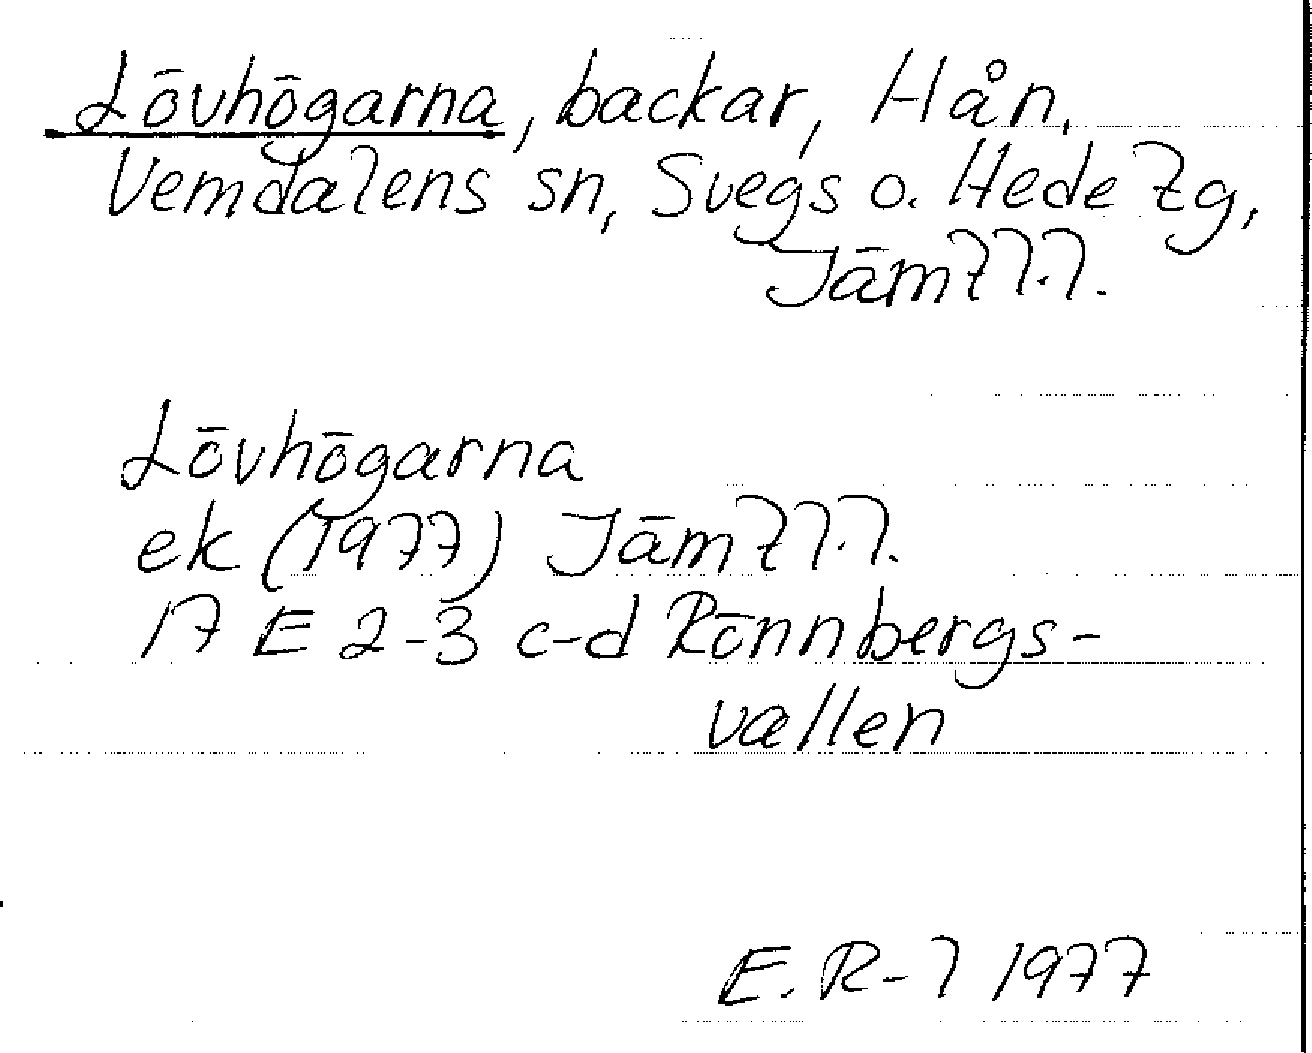 Lövhögarna, backar, Hån,
Vemdalens sn, Svegs o. Hede tg,
Jämtl.l.
Lövhögarna
ek (1977) Jämtl.l.
17 E 2-3 c-d Rönnbergs-
vallen
E. R-l 1977